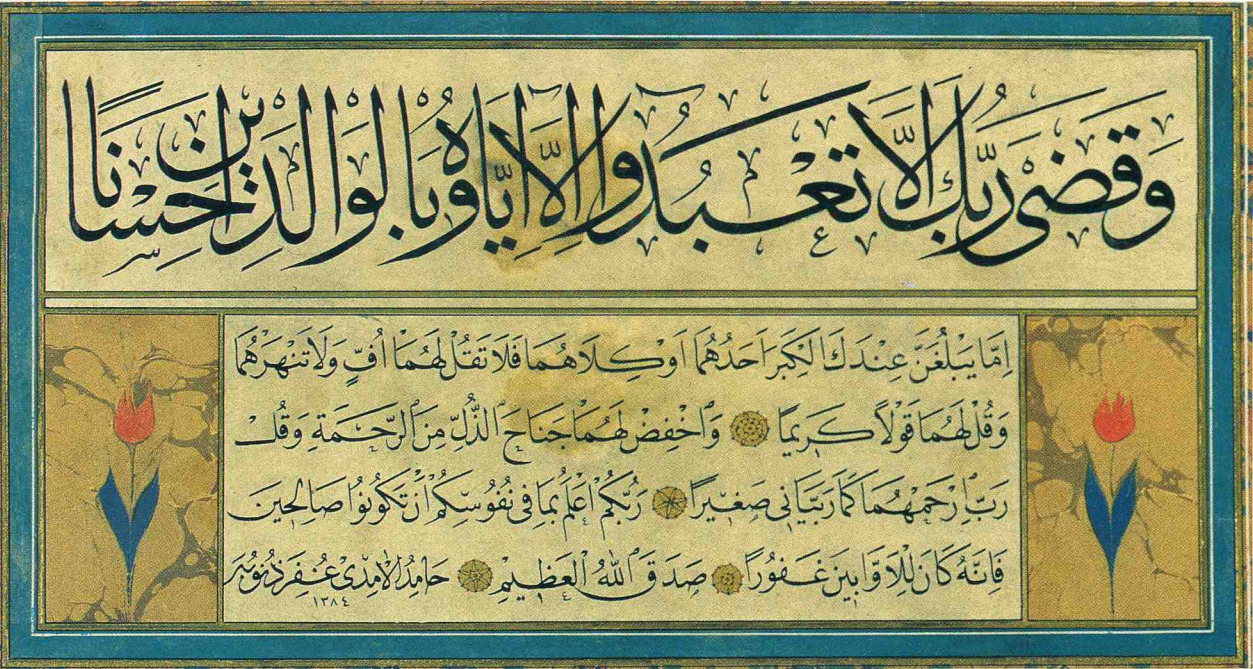 وَقَضٰى رَبُّكَ اَلَّا تَعْبُدُوا اِلَّا اِيَّاهُ وَبِالْوَالِدَيْنِ اِحْسَانًا
اِمَّا يَبْلُغَنَّ عِنْدَكَ الْكِبَرَ اَحَدُهُمَا اَوْ كِلَاهُمَا فَلَا تَقُلْ لَهُمَا اُفٍّ وَلَا تَنْهَرْهُمَا
وَقُلْ لَهُمَا قَوْلًا كَرِيمًا وَاخْفِضْ لَهُمَا جَنَاحَ الذُّلِّ مِنَ الرَّحْمَةِ وَقُلْ
رَبِّ ارْحَمْهُمَا كَمَا رَبَّيَانِي صَغِيرًا رَبُّكُمْ اَعْلَمُ بِمَا فِي نُفُوسِكُمْ اَنْ تَكُونُوا صَالِحِينَ
فَاِنَّهُ كَانَ لِلْاَوَّابِينَ غَفُورًا صَدَقَ اللّٰهُ الْعَظِيمُ حَامِدُ الْاٰمِدِى غُفِرَ ذُنُوبُهُ
١٣٨٤